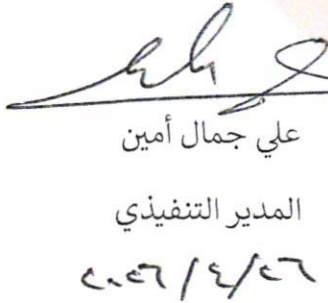 علي جمال أمين
المدير التنفيذي
٢٠٢٦/٤/٢٦